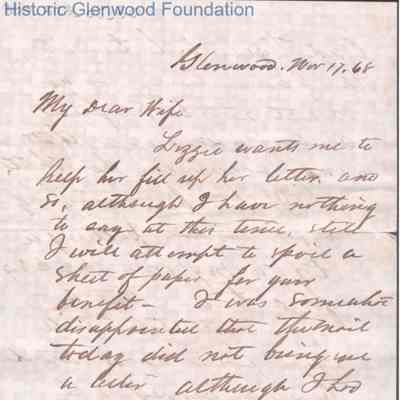 Historic Glenwood Foundation
Glenwood. Nov 17. 68
My Dear Wife
Lizzie wants me to
help her fill up her letter and
so, although I have nothing
to say at this time, still
I will attempt to spoil a
sheet of paper for your
benefit— I was somewhat
disappointed that the mail
today did not bring me
a letter although I had